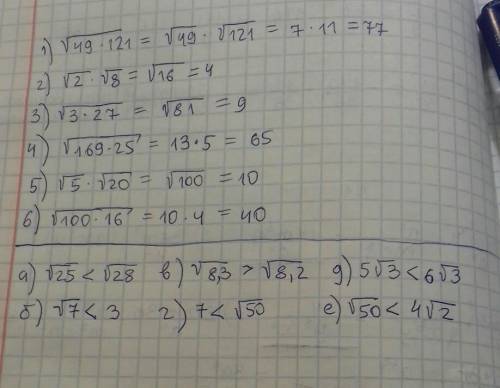 1) √49·121 = √49 · √121 = 7 · 11 = 77
2) √2 · √8 = √16 = 4
3) √3·27 = √81 = 9
4) √169·25 = 13·5 = 65
5) √5 · √20 = √100 = 10
6) √100·16 = 10·4 = 40
а) √25 < √28 в) √8,3 > √8,2 д) 5√3 < 6√3
б) √7 < 3 г) 7 < √50 е) √50 < 4√2